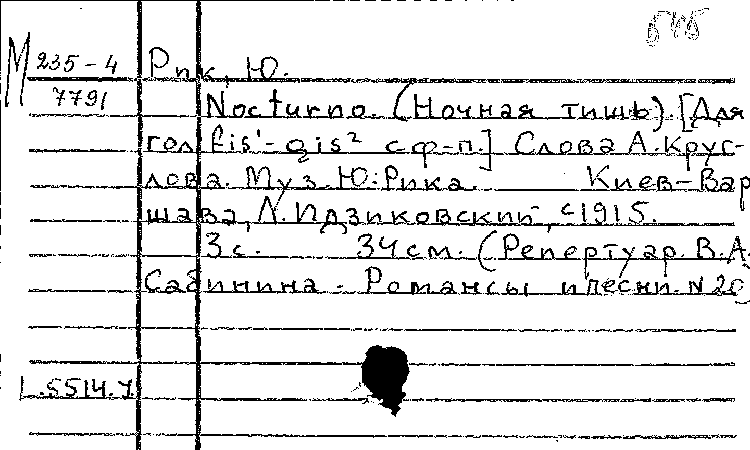 545
М 235-4 Рик, Ю.
7791 Nocturno. (Ночная тишь). [Для
гол fis¹- gis² с ф-п.] Слова А. Крус-
лова. Муз. Ю. Рика. Киев-Вар
шава, Л. Идзиковский, с1915.
3 с. 34 см. (Репертуар В. А.
Сабинина. Романсы и песни. N 20)
L.5514.1